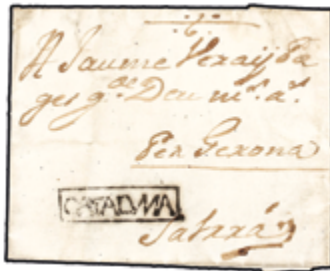 A Jaume Veray Pa
ges g.ⁿᵉ Deu m.ˢ a.ˢ
Per Gerona
CATALVÑA
Sarrá